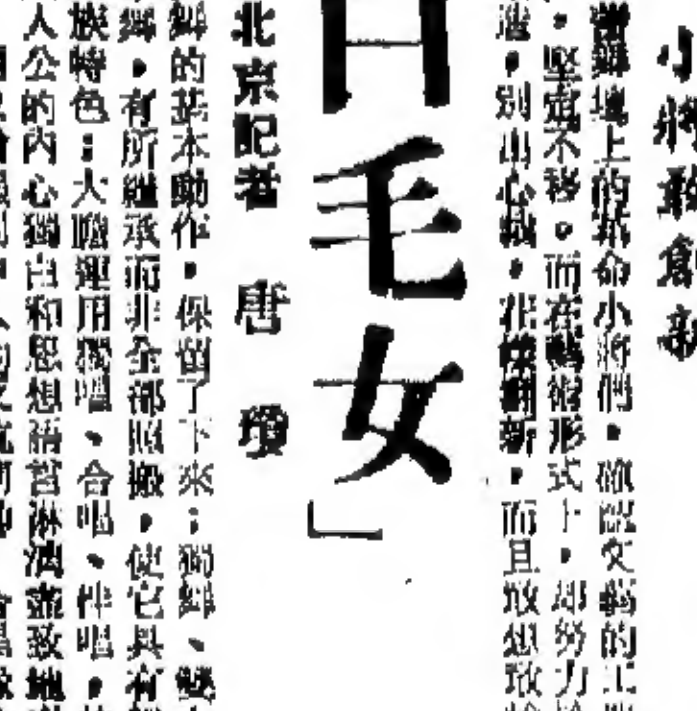 小將敢創新
舞壇上的革命小將們，確認文藝的工
，堅定不移。而在藝術形式上，却努力
，別出心裁，花樣翻新，而且敢想敢
毛女」
北京記者 唐瓊
舞的基本動作，保留了下來；獨舞、雙
舞，有所繼承而非全部照搬，使它具有
族特色；大膽運用獨唱、合唱、伴唱，
人公的內心獨白和思想語言淋漓盡致地